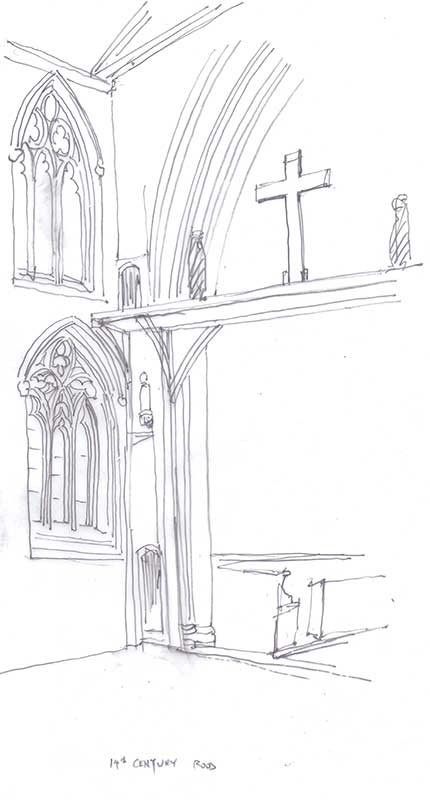 14th CENTURY ROOD